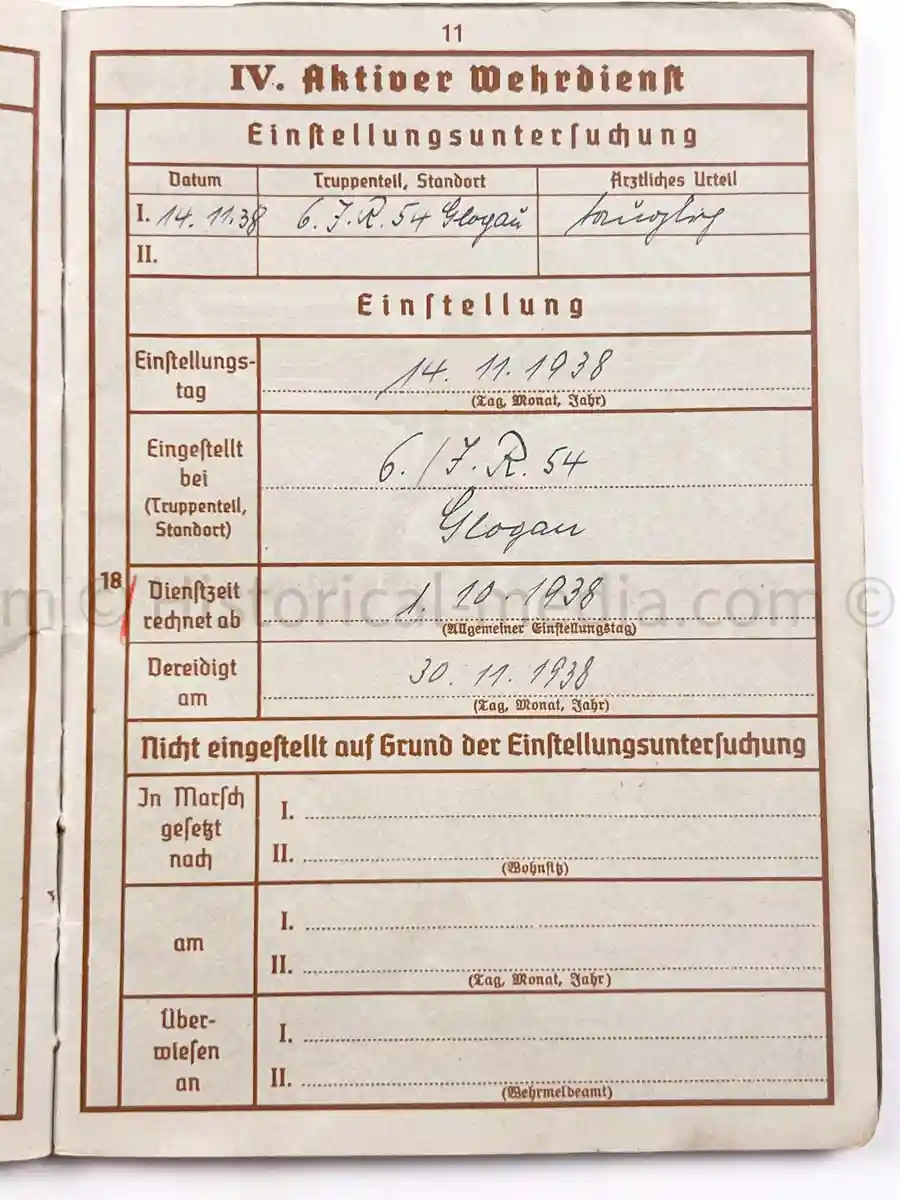 11
IV. Aktiver Wehrdienst
Einstellungsuntersuchung
Datum Truppenteil, Standort Ärztliches Urteil
I. 14. 11. 38 6. J. R. 54 Glogau tauglich
II.
Einstellung
Einstellungs-
tag
14. 11. 1938
(Tag, Monat, Jahr)
Eingestellt
bei
(Truppenteil,
Standort)
6. / J. R. 54
Glogau
18
Dienstzeit
rechnet ab
1. 10 1938
(Allgemeiner Einstellungstag)
Vereidigt
am
30. 11. 1938
(Tag, Monat, Jahr)
Nicht eingestellt auf Grund der Einstellungsuntersuchung
In Marsch
gesetzt
nach
I.
II.
(Wohnsitz)
am
I.
II.
(Tag, Monat, Jahr)
Über-
wiesen
an
I.
II.
(Wehrmeldeamt)
m © Historical-media.com ©